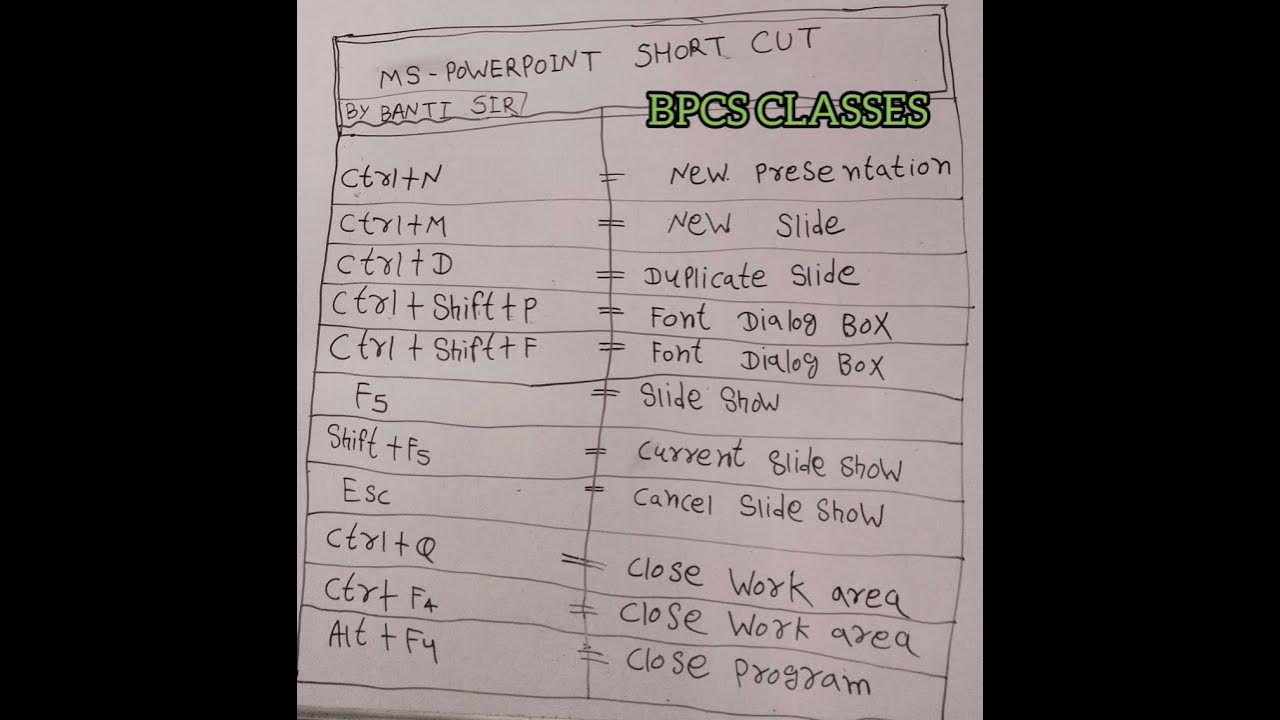 MS-POWERPOINT SHORT CUT
BY BANTI SIR
BPCS CLASSES
Ctrl+N = New Presentation
Ctrl+M = New Slide
Ctrl+D = Duplicate Slide
Ctrl+Shift+P = Font Dialog Box
Ctrl+Shift+F = Font Dialog Box
F5 = Slide Show
Shift+F5 = Current Slide Show
Esc = Cancel Slide Show
Ctrl+Q = Close Work area
Ctr+F4 = Close Work area
Alt+F4 = Close Program